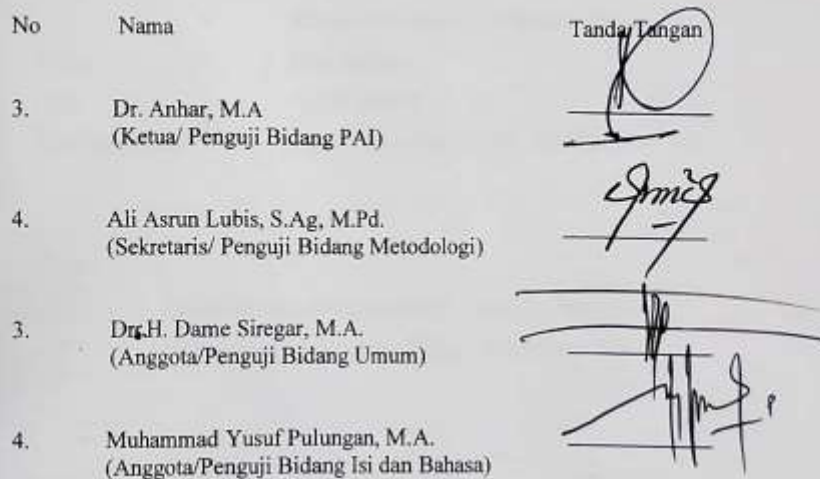 No Nama Tanda Tangan
3. Dr. Anhar, M.A
(Ketua/ Penguji Bidang PAI)
4. Ali Asrun Lubis, S.Ag, M.Pd.
(Sekretaris/ Penguji Bidang Metodologi)
3. Drs.H. Dame Siregar, M.A.
(Anggota/Penguji Bidang Umum)
4. Muhammad Yusuf Pulungan, M.A.
(Anggota/Penguji Bidang Isi dan Bahasa)